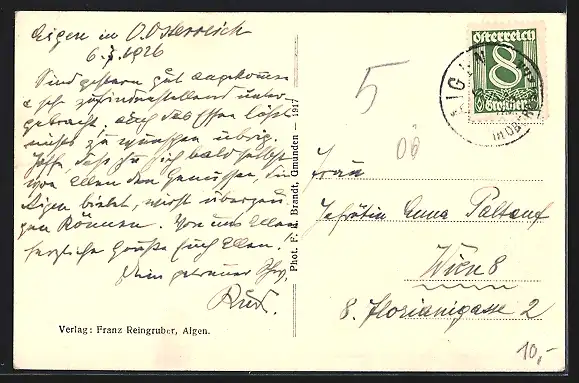 Aigen in O. Österreich
6.7.1926
Sind gestern gut angekommen
& sehr zufriedenstellend unter-
gebracht, auch das Essen läßt
nichts zu wünschen übrig.
Hoffe, dass Du Dich bald selbst
von allen den Genüssen, die
Aigen bietet, wirst überzeu-
gen können. Von uns Allen
herzliche Grüße Euch Allen!
Dein getreuer
Verlag: Franz Reingruber, Aigen.
Phot. F. E. Brandt, Gmunden — 1917
5
ÖÖ
Österreich
8
Groschen
AIGEN
Frau
Anna Paltauf
Wien 8
8. Florianigasse 2
10,-